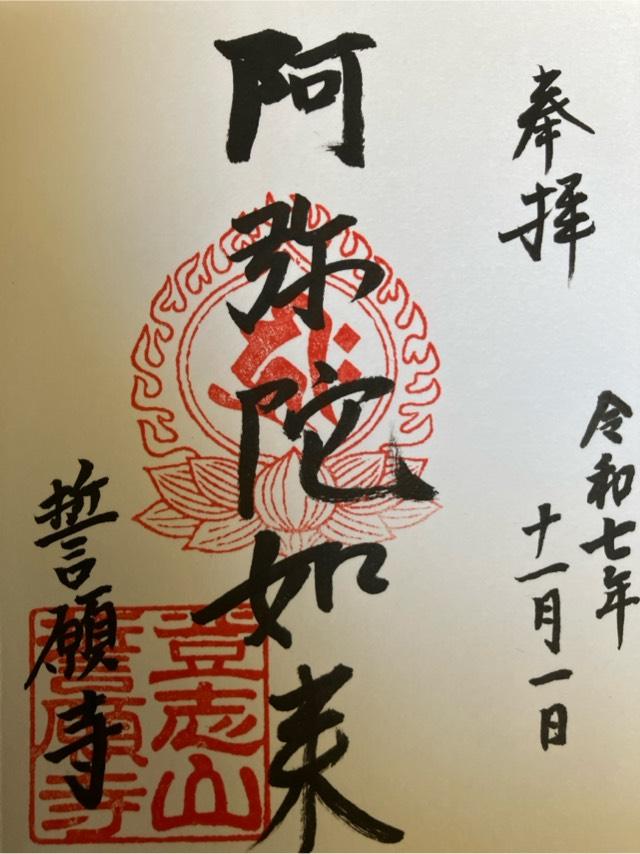 奉拝
令和七年
十一月一日
阿弥陀如来
誓願寺
登志山
誓願寺